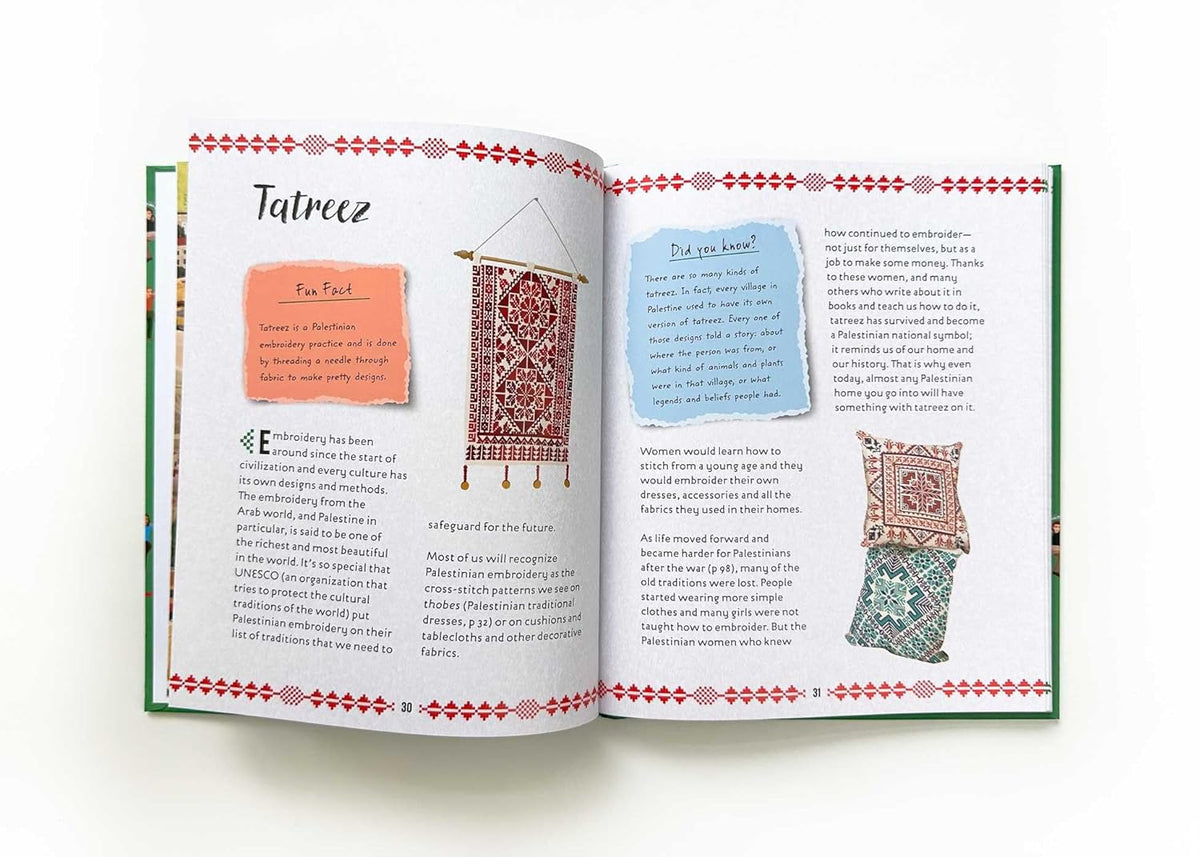 Tatreez
Fun Fact
Tatreez is a Palestinian
embroidery practice and is done
by threading a needle through
fabric to make pretty designs.
Embroidery has been
around since the start of
civilization and every culture has
its own designs and methods.
The embroidery from the
Arab world, and Palestine in
particular, is said to be one of
the richest and most beautiful
in the world. It's so special that
UNESCO (an organization that
tries to protect the cultural
traditions of the world) put
Palestinian embroidery on their
list of traditions that we need to
safeguard for the future.
Most of us will recognize
Palestinian embroidery as the
cross-stitch patterns we see on
thobes (Palestinian traditional
dresses, p 32) or on cushions and
tablecloths and other decorative
fabrics.
30
Did you know?
There are so many kinds of
tatreez. In fact, every village in
Palestine used to have its own
version of tatreez. Every one of
those designs told a story: about
where the person was from, or
what kind of animals and plants
were in that village, or what
legends and beliefs people had.
Women would learn how to
stitch from a young age and they
would embroider their own
dresses, accessories and all the
fabrics they used in their homes.
As life moved forward and
became harder for Palestinians
after the war (p 98), many of the
old traditions were lost. People
started wearing more simple
clothes and many girls were not
taught how to embroider. But the
Palestinian women who knew
how continued to embroider—
not just for themselves, but as a
job to make some money. Thanks
to these women, and many
others who write about it in
books and teach us how to do it,
tatreez has survived and become
a Palestinian national symbol;
it reminds us of our home and
our history. That is why even
today, almost any Palestinian
home you go into will have
something with tatreez on it.
31